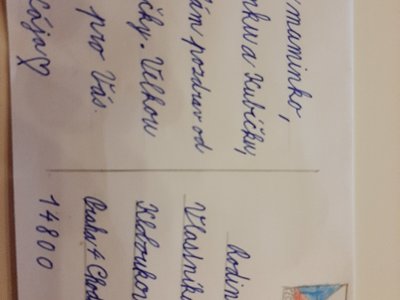 maminko,
nku a Kubíčku,
ám pozdrav od
čky. Velkou
pro Vás.
Kája♡
Rodin
Vlastník
Kloboukov
Praha 4 Chod
14800